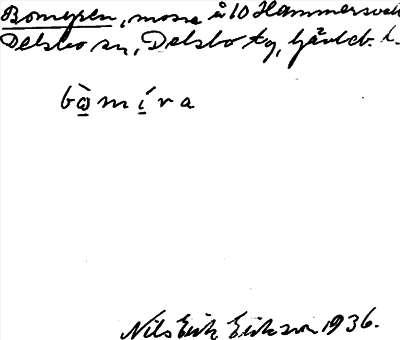 Bomyren, mosse å 10 Hammersvall
Delsbo sn, Delsbo tg, Gävleb. l.
bo̱̽m í̱ r a
Nils Erik Eriksson 1936.